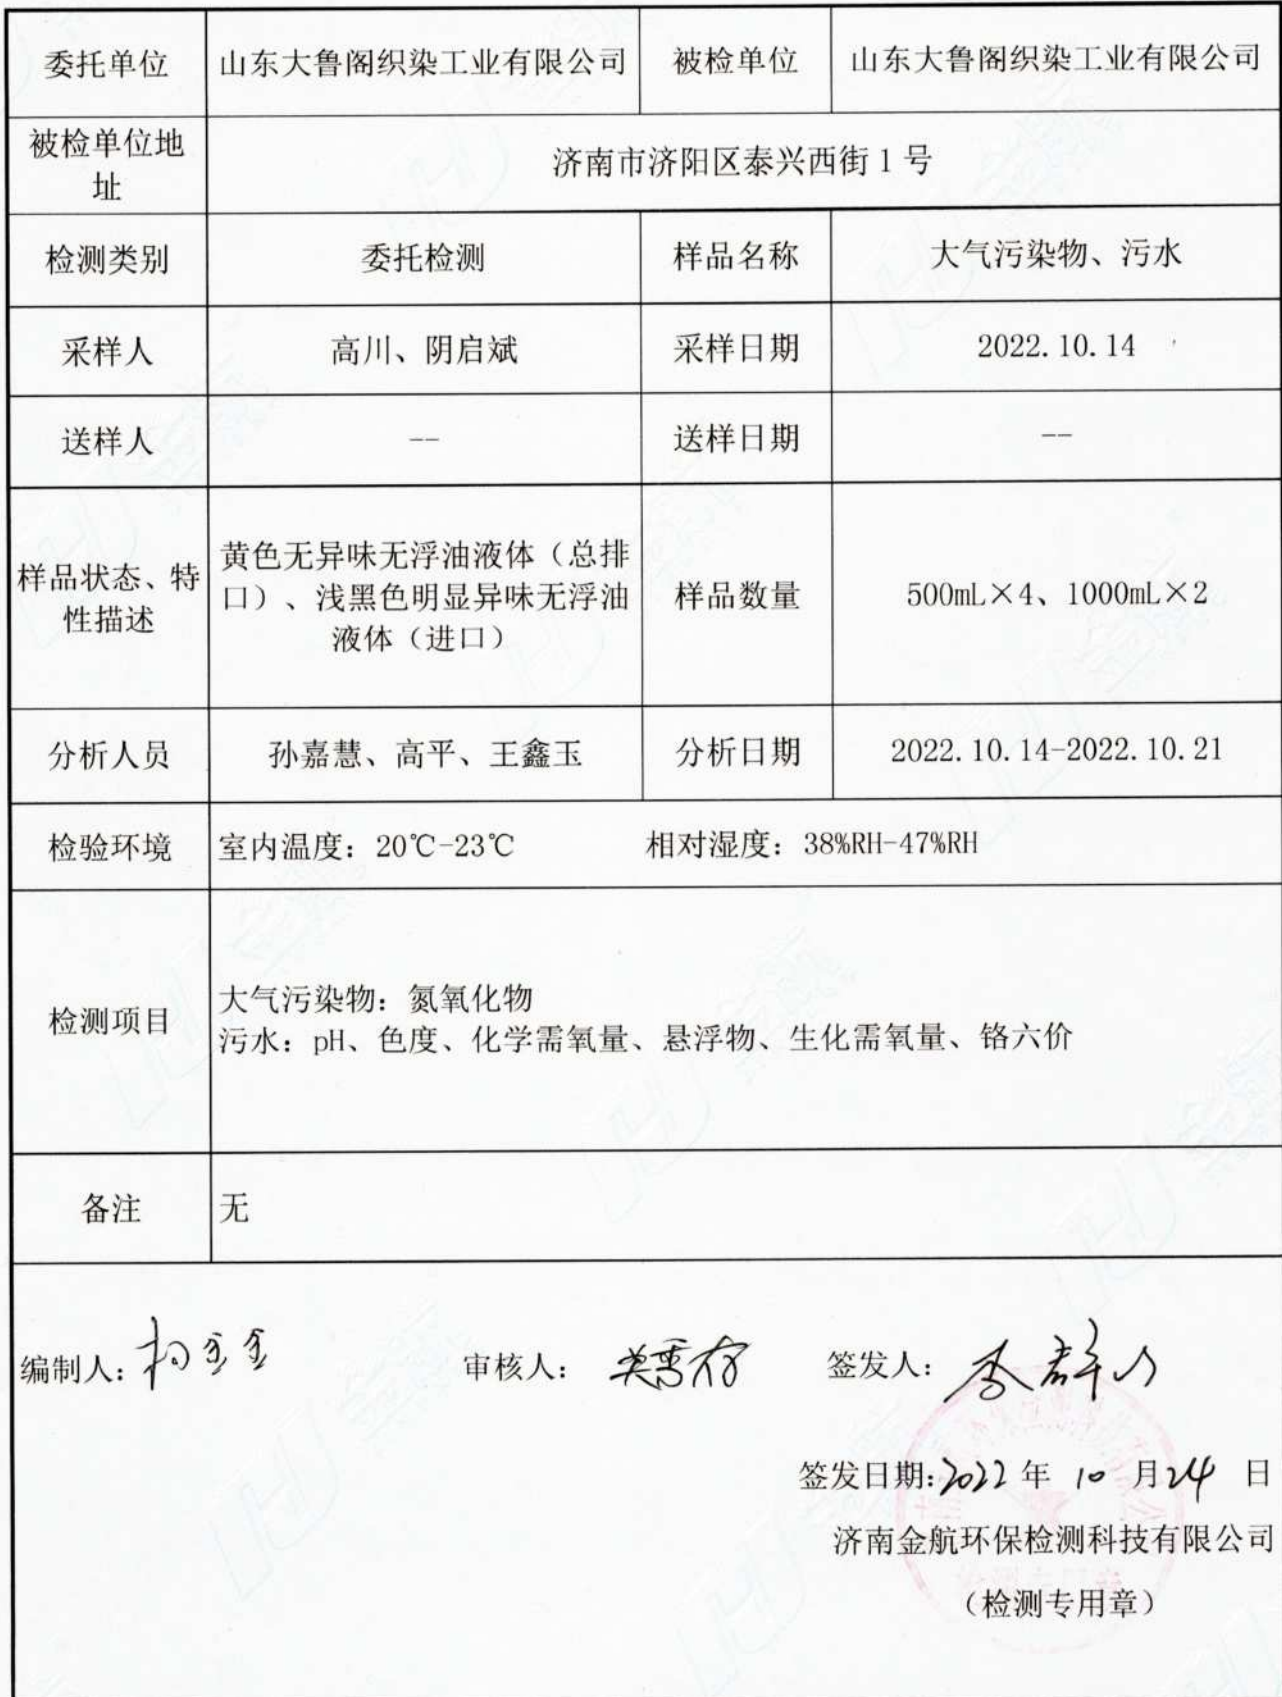 委托单位 山东大鲁阁织染工业有限公司 被检单位 山东大鲁阁织染工业有限公司
被检单位地
址
济南市济阳区泰兴西街 1 号
检测类别 委托检测 样品名称 大气污染物、污水
采样人 高川、阴启斌 采样日期 2022.10.14
送样人 -- 送样日期 --
样品状态、特
性描述
黄色无异味无浮油液体（总排
口）、浅黑色明显异味无浮油
液体（进口）
样品数量 500mL×4、1000mL×2
分析人员 孙嘉慧、高平、王鑫玉 分析日期 2022.10.14-2022.10.21
检验环境 室内温度：20℃-23℃ 相对湿度：38%RH-47%RH
检测项目
大气污染物：氮氧化物
污水：pH、色度、化学需氧量、悬浮物、生化需氧量、铬六价
备注 无
编制人： 审核人： 签发人：
签发日期:2022 年 10 月 24 日
济南金航环保检测科技有限公司
（检测专用章）